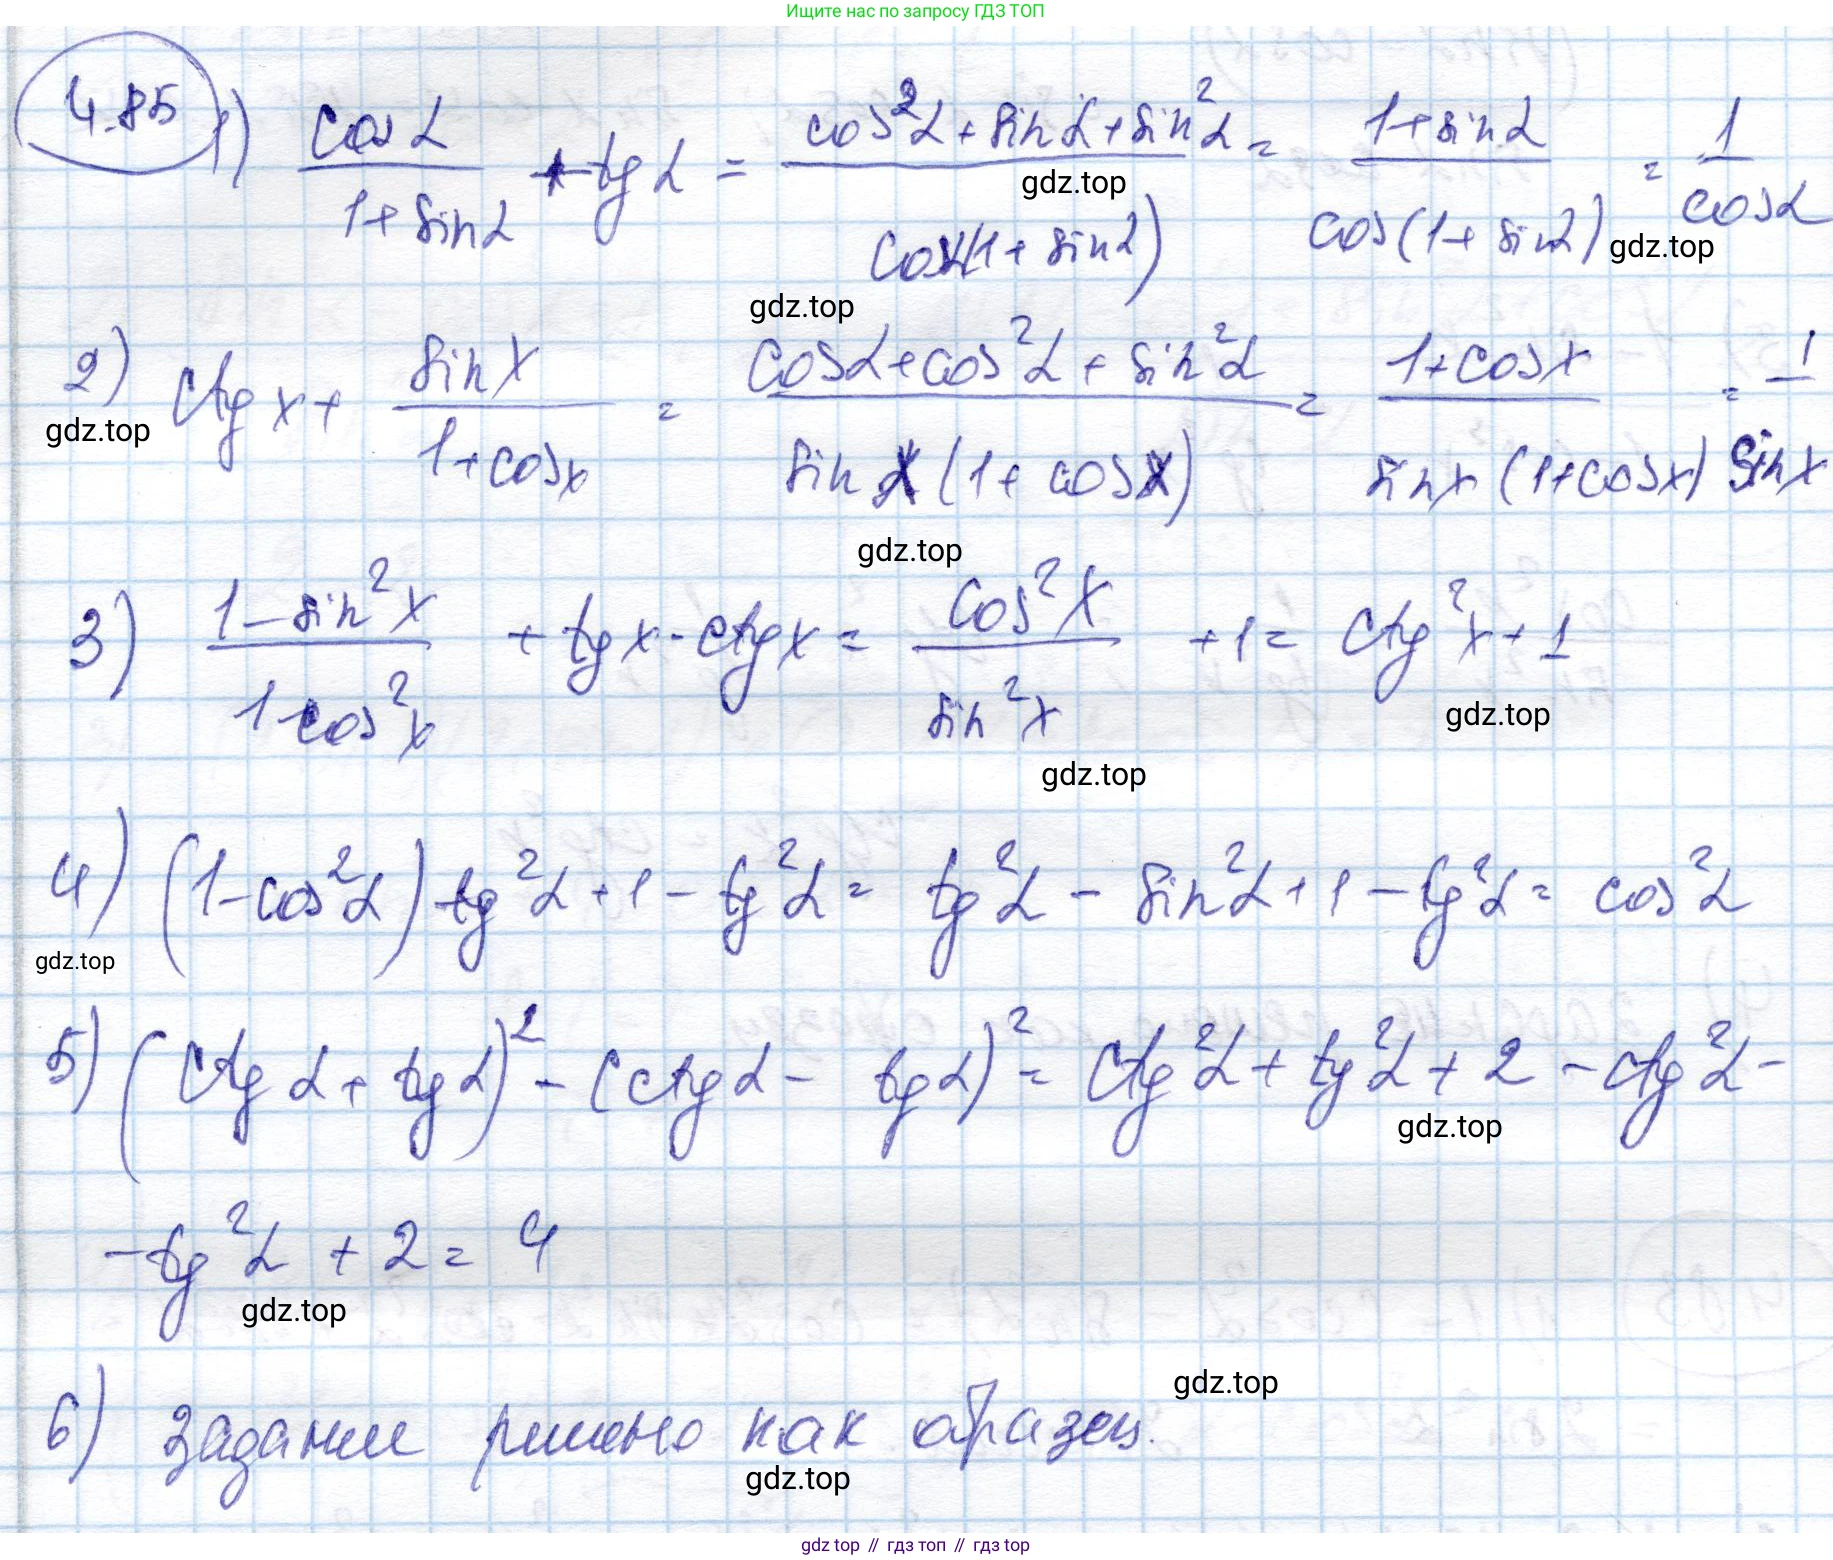 Ищите нас по запросу ГДЗ ТОП
4.85 1) cos α / (1 + sin α) + tg α = (cos²α + sin α + sin²α) / (cos α (1 + sin α)) = (1 + sin α) / (cos (1 + sin α)) = 1 / cos α
gdz.top
gdz.top
gdz.top
2) ctg x + sin x / (1 + cos x) = (cos α + cos²α + sin²α) / (sin x (1 + cos x)) = (1 + cos x) / (sin x (1 + cos x)) = 1 / sin x
gdz.top
gdz.top
3) (1 - sin²x) / (1 - cos²x) + tg x · ctg x = cos²x / sin²x + 1 = ctg²x + 1
gdz.top
gdz.top
4) (1 - cos²α) tg²α + 1 - tg²α = tg²α - sin²α + 1 - tg²α = cos²α
gdz.top
5) (ctg α + tg α)² - (ctg α - tg α)² = ctg²α + tg²α + 2 - ctg²α -
gdz.top
- tg²α + 2 = 4
gdz.top
gdz.top
6) задание решено как образец.
gdz.top
gdz top // гдз топ // гдз top